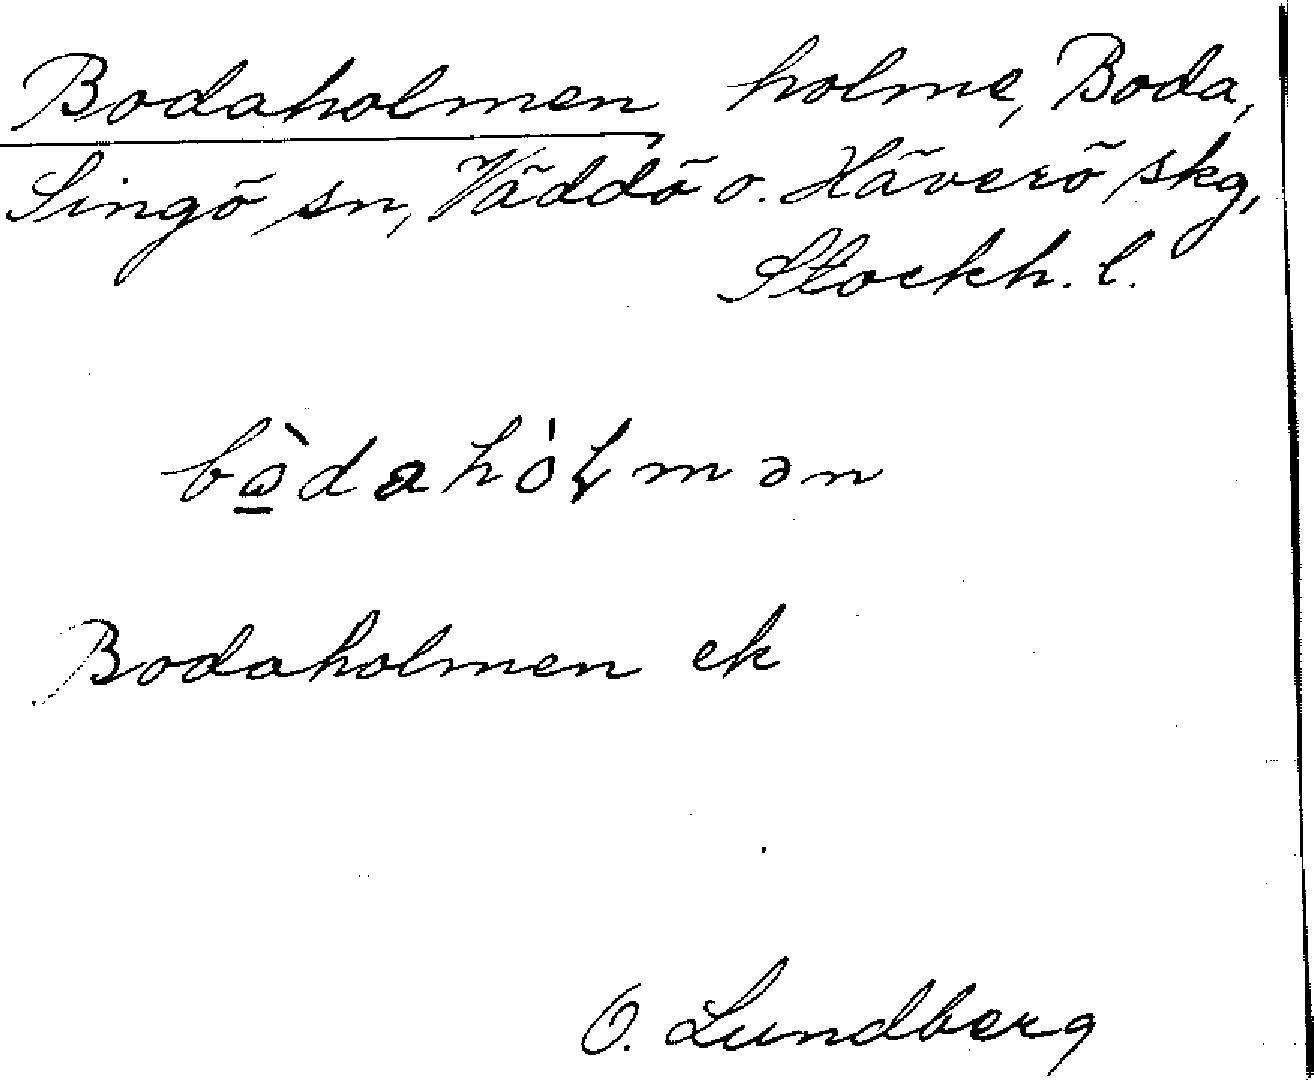 Bodaholmen, holme, Boda,
Singö sn, Väddö o. Häverö skg,
Stockh. l.
bὼ̲dahól̥mən
Bodaholmen ek
O. Lundberg